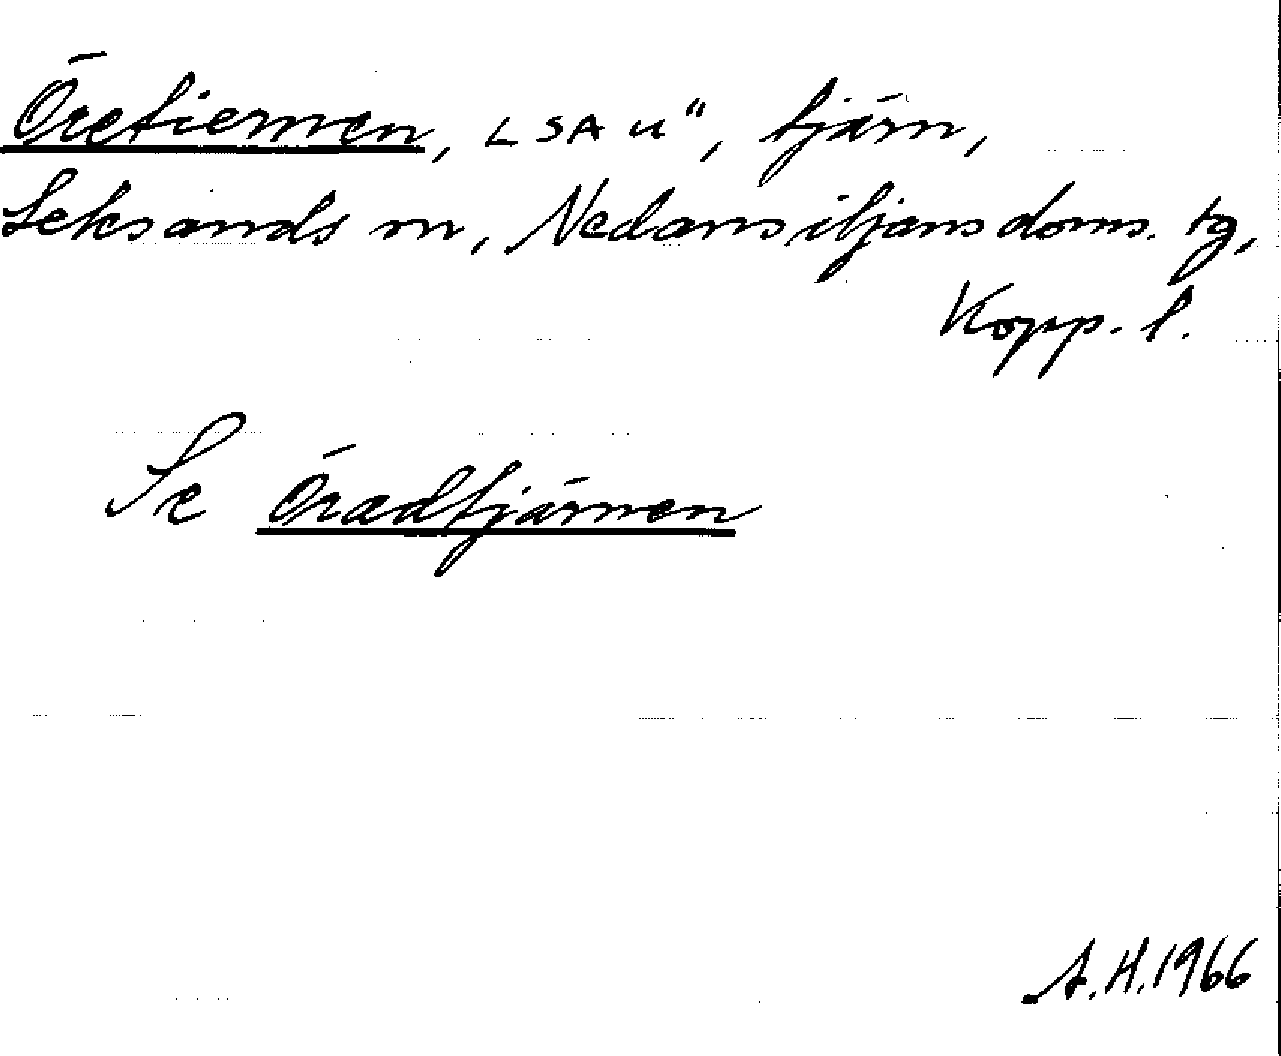 Öretiernen, LSA u", tjärn,
Leksands sn, Nedansiljans doms. tg,
Kopp. l.
Se Öradtjärnen
A.H. 1966